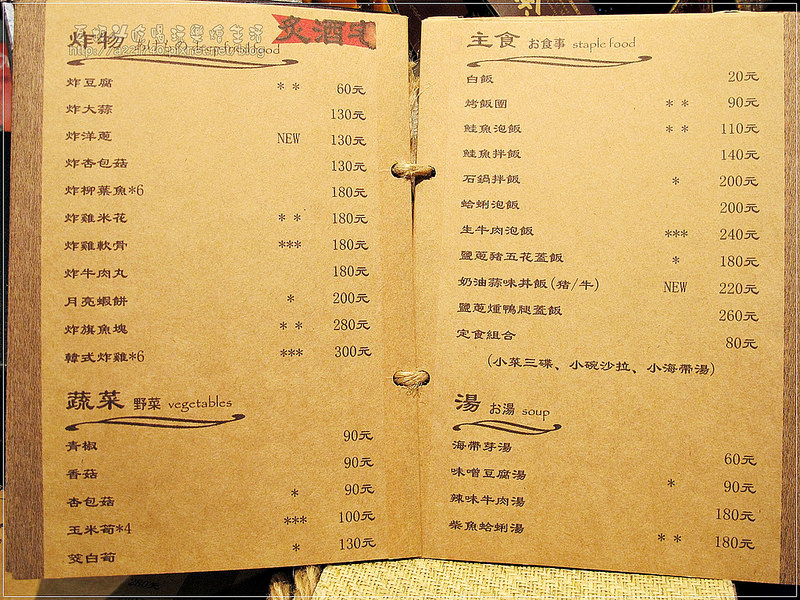 炸物 deep fried food
炸豆腐 ** 60元
炸大蒜 130元
炸洋蔥 NEW 130元
炸杏包菇 130元
炸柳葉魚*6 180元
炸雞米花 ** 180元
炸雞軟骨 *** 180元
炸牛肉丸 180元
月亮蝦餅 * 200元
炸旗魚塊 ** 280元
韓式炸雞*6 *** 300元
蔬菜 野菜 vegetables
青椒 90元
香菇 90元
杏包菇 * 90元
玉米荀*4 *** 100元
筊白荀 * 130元
炙酒
主食 お食事 staple food
白飯 20元
烤飯團 ** 90元
鮭魚泡飯 ** 110元
鮭魚拌飯 140元
石鍋拌飯 * 200元
蛤蜊泡飯 200元
生牛肉泡飯 *** 240元
鹽蔥豬五花蓋飯 * 180元
奶油蒜味丼飯(豬/牛) NEW 220元
鹽蔥燻鴨腿蓋飯 260元
定食組合 80元
(小菜三碟、小碗沙拉、小海帶湯)
湯 お湯 soup
海帶芽湯 60元
味噌豆腐湯 * 90元
辣味牛肉湯 180元
柴魚蛤蜊湯 ** 180元